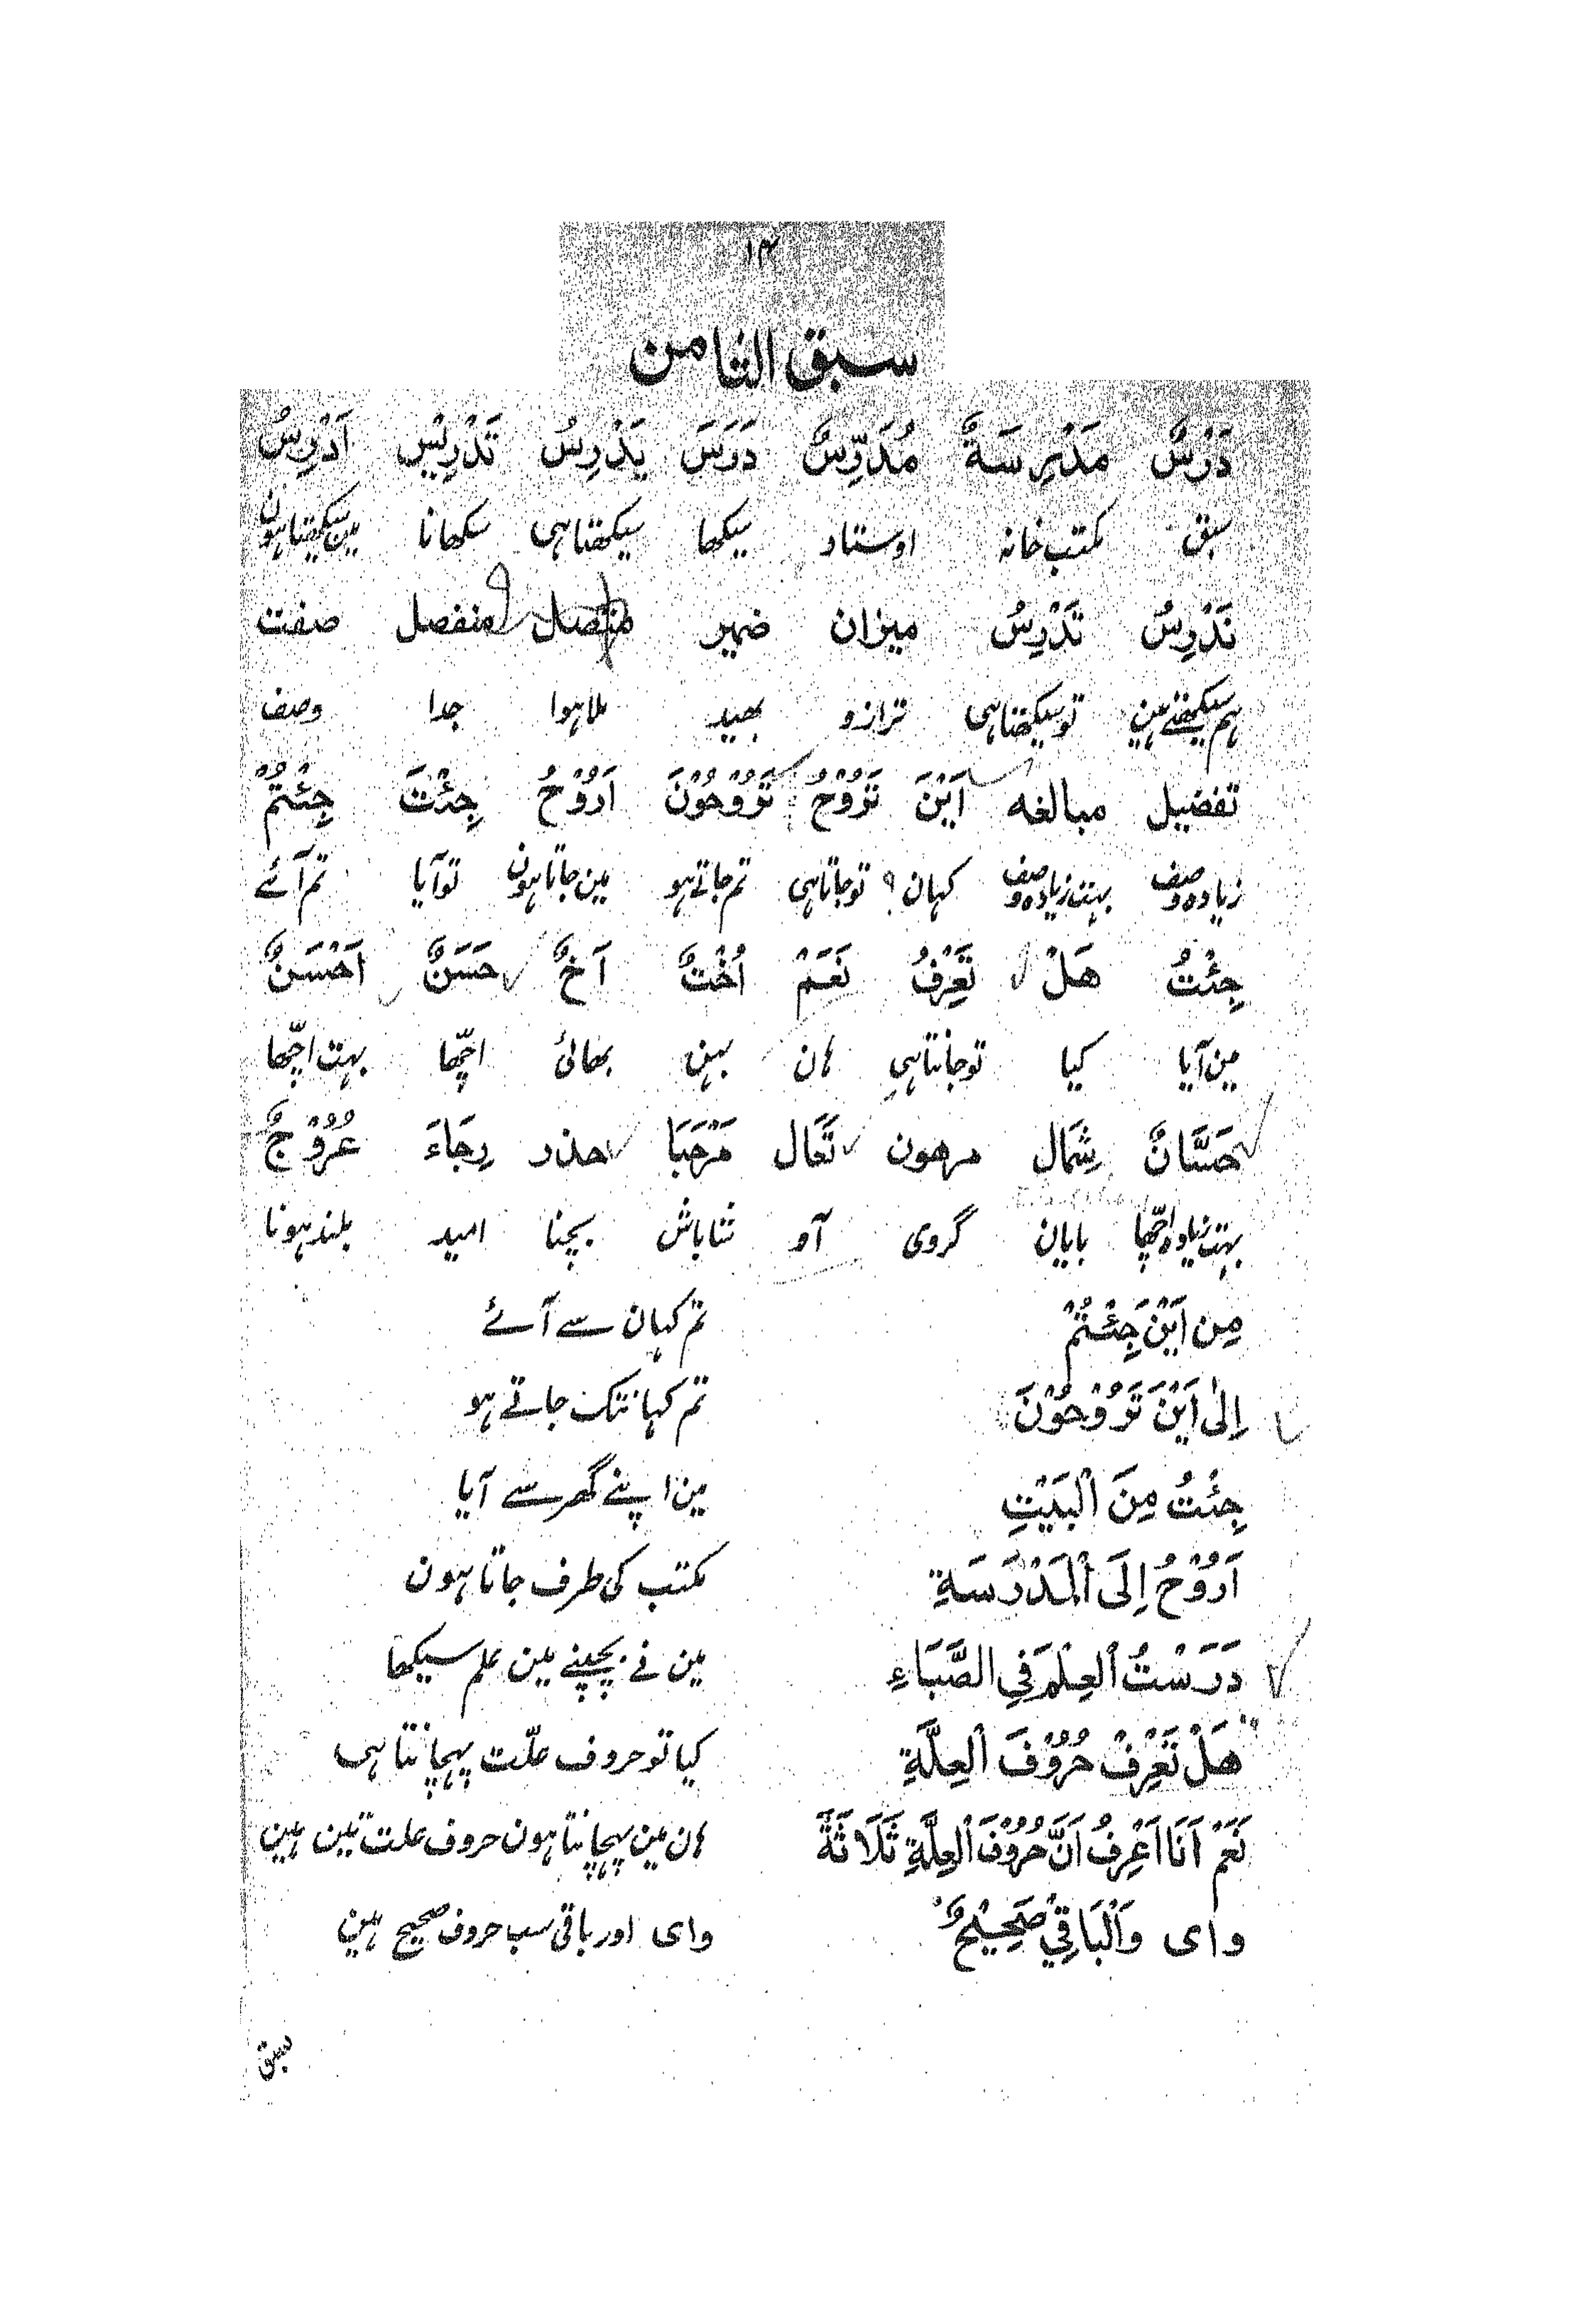 ۱۴
سبق الثامن
دَرْسٌ مَدْرِسَةٌ مُدَرِّسٌ دَرَسَ يَدْرِسُ تَدْرِيْس اَدْرِسُ
سبق مکتب خانہ اوستاد سیکھا سیکھتا ہی سکھانا مین سیکھتا ہون
نَدْرِسُ تَدْرِسُ ميزان ضمير متصل منفصل صفت
ہم سیکھتے ہین تو سیکھتا ہی ترازو بھید ملا ہوا جدا وصف
تفضيل مبالغه اَيْنَ تَرُوْحُ تَرُوْحُوْنَ اَرُوْحُ جِئْتَ جِئْتُمْ
زیادہ وصف بہت زیادہ وصف کہان؟ تو جاتا ہی تم جاتے ہو مین جاتا ہون تو آیا تم آئے
جِئْتُ هَلْ تَعْرِفُ نَعَمْ اُخْتٌ اَخٌ حَسَنٌ اَحْسَنٌ
مین آیا کیا تو جانتا ہی ہان بہن بھائی اچّھا بہت اچّھا
حَسَّانٌ شِمَال مرهون تَعَال مَرْحَبَا حذر رِجَاءَ عُرُوْجٌ
بہت زیادہ اچّھا بایان گروی آو شاباش بچنا امید بلند ہونا
مِن اَيْنَ جِئْتُمْ تم کہان سے آئے
اِلٰى اَيْنَ تَرُوْحُوْنَ تم کہانتک جاتے ہو
جِئْتُ مِنَ الْبَيْتِ مین اپنے گھر سے آیا
اَرُوْحُ اِلَى الْمَدْرَسَةِ مکتب کی طرف جاتا ہون
دَرَسْتُ الْعِلْمَ فِي الصَّبَاءِ مین نے بچپنے مین علم سیکھا
هَلْ تَعْرِفْ حُرُوْفَ الْعِلَّةِ کیا تو حروف علّت پہچانتا ہی
نَعَمْ اَنَا اَعْرِفُ اَنَّ حُرُوْفَ الْعِلَّةِ ثَلَاثَةٌ ہان مین پہچانتا ہون حروف علت تین ہین
و ا ى وَالْبَاقِيْ صَحِيْحٌ و ا ی اور باقی سب حروف صحیح ہین
سبق